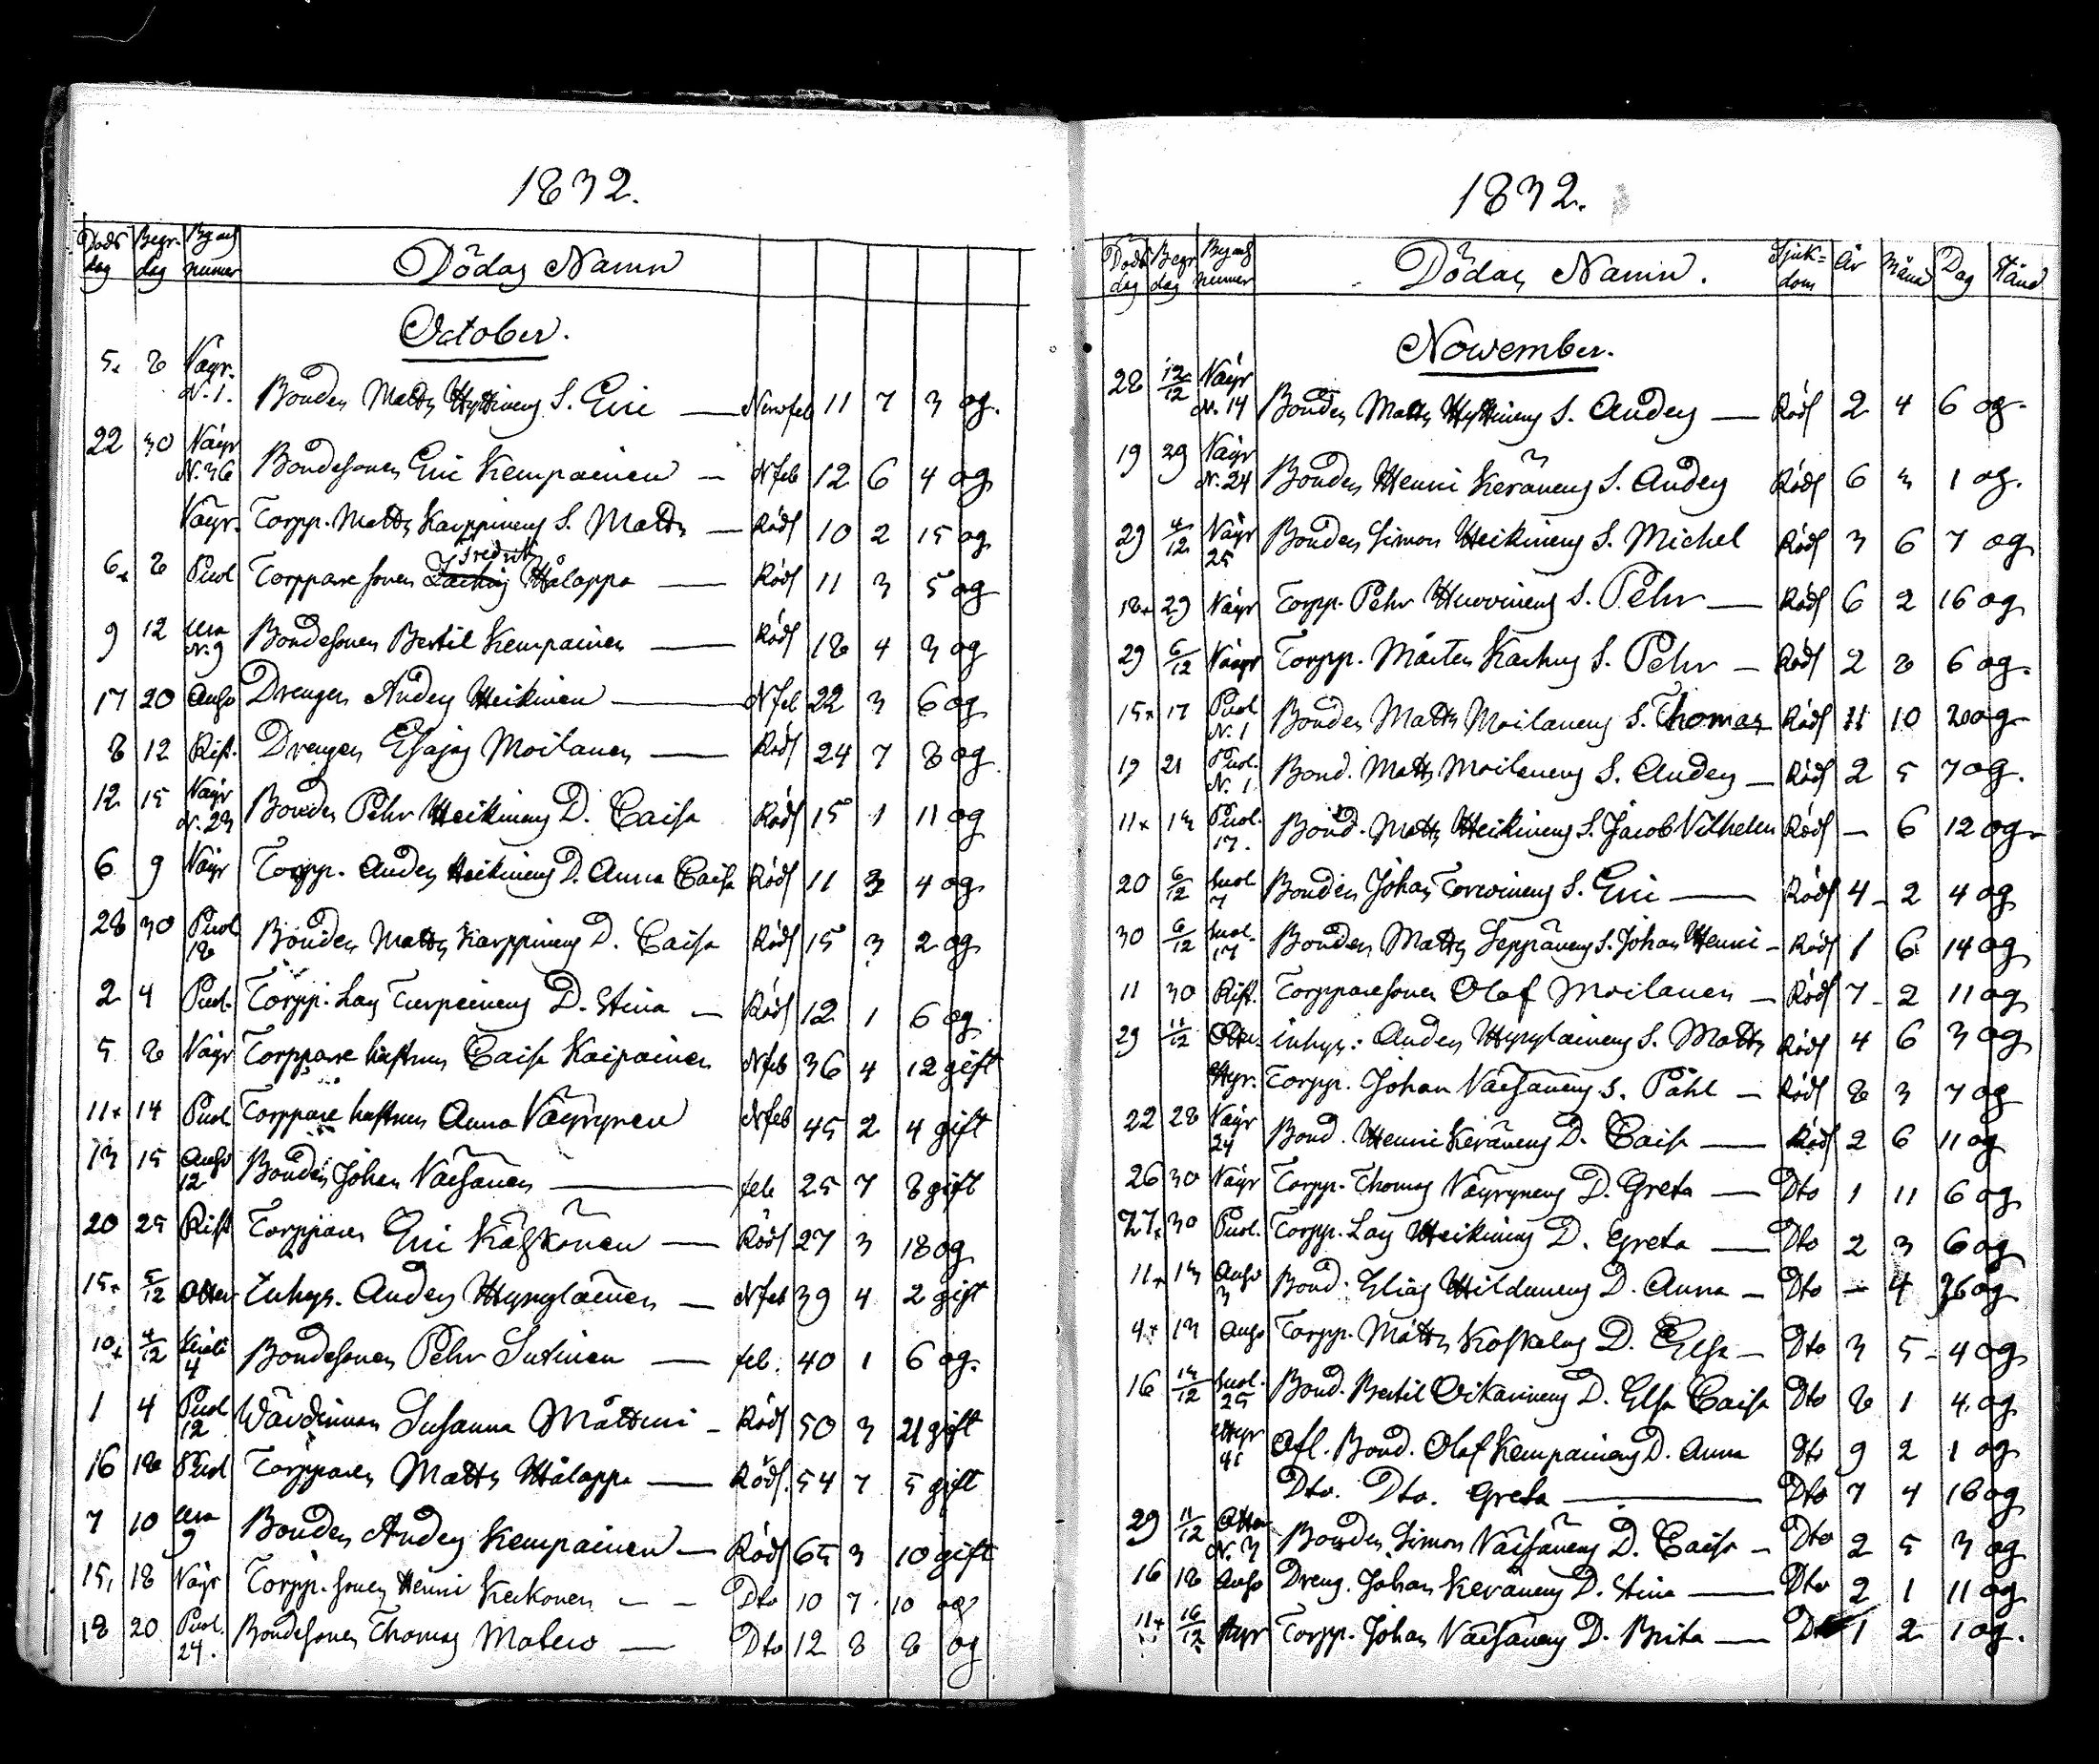 1832.
Döds dag Begr. dag By och numer Dödas Namn
October.
5. 8 Väyr. N. 1. Bonden Matts Hyttinens S. Eric — Nervfeb 11 7 3 og.
22 30 Väyr N. 36 Bondesonen Eric Kempainen — Nfeb 12 6 4 og
Väyr. Torpp. Matts Karppinens S. Matts — Röds 10 2 15 og
6 8 Puol Torpparesonen Fredrik Hålappa — Röds 11 3 5 og
9 12 N. 9 Bondesonen Bertil Kempainen — Röds 18 4 3 og
17 20 Anso Drengen Anders Heikinen — Nfeb 22 3 6 og
8 12 Rist. Drengen Esajas Moilanen — Röds 24 7 8 og
12 15 Väyr N. 23 Bonden Pehr Heikinens D. Caisa Röds 15 1 11 og
6 9 Väyr Torpp. Anders Heikinens D. Anna Caisa Röds 11 3 4 og
28 30 Puol 18 Bonden Matts Karppinens D. Caisa Röds 15 3 2 og
2 4 Puol. Torpp. Lars Turpeinens D. Stina — Röds 12 1 6 og
5 8 Väyr Torppare hustrun Caisa Kaipainen Nfeb 36 4 12 gift
11 14 Puol Torppare hustrun Anna Väyrynen Nfeb 45 2 4 gift
13 15 Anso 12 Bonden Johan Väisänen — feb 25 7 8 gift
20 25 Rist Torpparen Eric Kääskönen — Röds 27 3 18 og
15 5/12 Otter Inhys. Anders Hyrylainen — Nfeb 39 4 2 gift
10 4/12 4 Bondesonen Pehr Sutinen — feb. 40 1 6 og.
1 4 Puol 12 Värdinnan Susanna Måttuni — Röds 50 3 21 gift
16 18 Puol Torpparen Matts Hålappa — Röds. 54 7 5 gift
7 10 9 Bonden Anders Kempainen — Röds 65 3 10 gift
15, 18 Väyr Torpp. sonen Henric Keckonen — — Dto 10 7 10 og
18 20 Puol. 24. Bondesonen Thomas Matero — Dto 12 8 8 og
1832.
Döds dag Begr dag By och numer Dödas Namn. Sjuk= dom År Månad Dag Stånd
November.
28 12/12 Väyr N. 14 Bonden Matts Hyttinens S. Anders — Röds 2 4 6 og.
19 29 Väyr N. 24 Bonden Henric Keränens S. Anders Röds 6 3 1 og.
29 4/12 Väyr 25 Bonden Simon Heikinens S. Michel Röds 3 6 7 og
18 29 Väyr Torpp. Pehr Huovinens S. Pehr — Röds 6 2 16 og
29 6/12 Väyr Torpp. Mårten Karhus S. Pehr — Röds 2 8 6 og.
15 17 Puol N. 1 Bonden Matts Moilanens S. Thomas Röds 11 10 20 og
19 21 Puol. N. 1 Bond. Matts Moilanens S. Anders — Röds 2 5 7 og.
11 13 Puol. 17. Bond. Matts Heikinens S. Jacob Vilhelm Röds — 6 12 og
20 6/12 Suol 7 Bonden Johan Torvinens S. Eric — Röds 4 2 4 og
30 6/12 Suol. 17 Bonden Matts Seppänens S. Johan Henric — Röds 1 6 14 og
11 30 Rist. Torpparesonen Olof Moilanen — Röds 7 2 11 og
29 11/12 Otter. inhys: Anders Hyrylainens S. Matts Röds 4 6 3 og
Hyr. Torpp. Johan Väisänens S. Påhl — Röds 8 3 7 og
22 28 Väyr 24 Bond. Henric Keränens D. Caisa — Röds 2 6 11 og
26 30 Väyr Torpp. Thomas Väyrynens D. Greta — Dto 1 11 6 og
27 30 Puol. Torpp. Lars Heikinens D. Greta — Dto 2 3 6 og
11 13 Anso 3 Bond. Elias Hildunens D. Anna — Dto — 4 26 og
4 13 Anso Torpp. Matts Koskelas D. Elsa — Dto 3 5 4 og
16 13/12 Suol. 25 Bond. Bertil Oikarinens D. Elsa Caisa Dto 8 1 4 og
Hyr Afl. Bond. Olof Kempainens D. Anna Dto 9 2 1 og
Dto. Dto. Greta — Dto 7 4 18 og
29 11/12 Otter N. 3 Bonden Simon Väisänens D. Caisa — Dto 2 5 3 og
16 18 Anso Dreng. Johan Keränens D. Stina — Dto 2 1 11 og
11 16/12 Hyr Torpp. Johan Väisänens D. Brita — Dto 1 2 1 og.